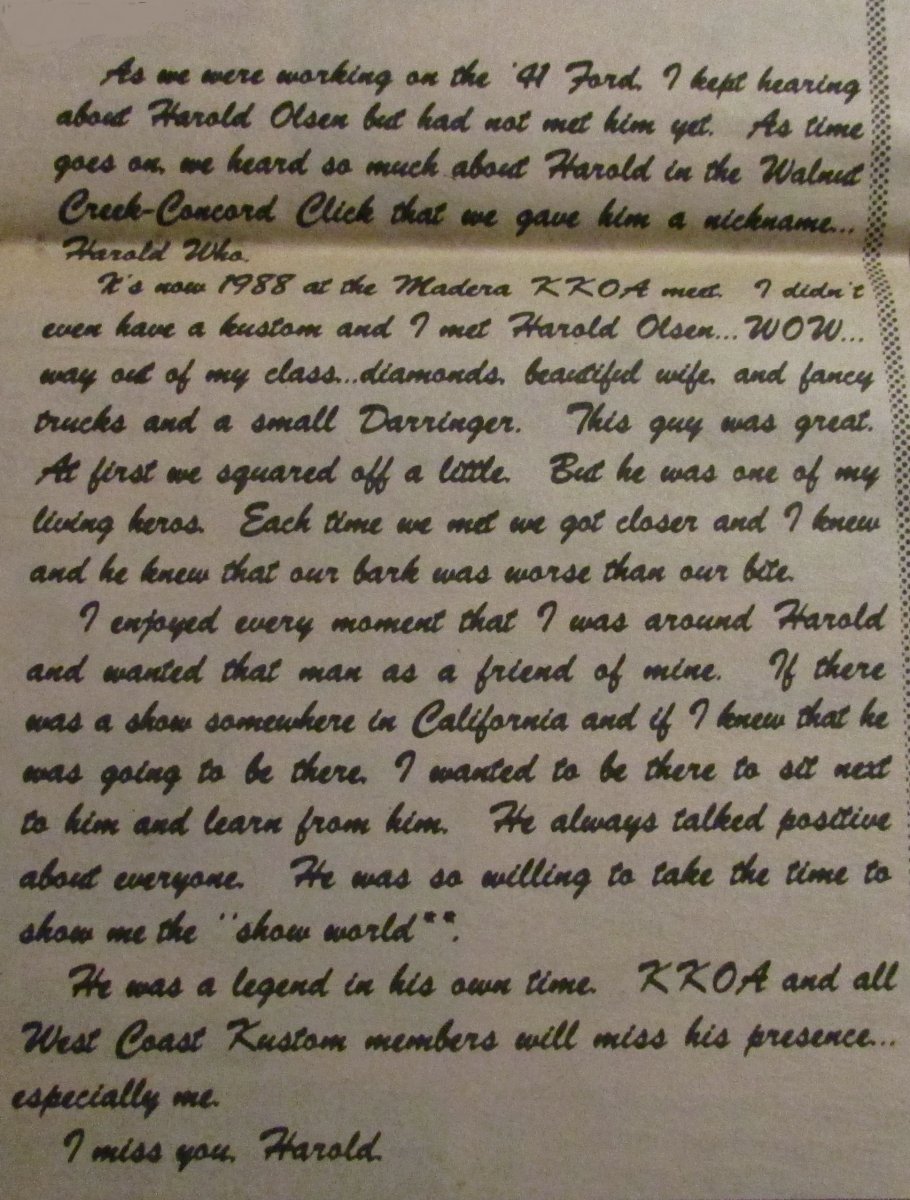 As we were working on the '41 Ford, I kept hearing
about Harold Olsen but had not met him yet. As time
goes on, we heard so much about Harold in the Walnut
Creek-Concord Click that we gave him a nickname...
Harold Who.
It's now 1988 at the Madera KKOA meet. I didn't
even have a kustom and I met Harold Olsen...WOW...
way out of my class...diamonds, beautiful wife, and fancy
trucks and a small Darringer. This guy was great.
At first we squared off a little. But he was one of my
living heros. Each time we met we got closer and I knew
and he knew that our bark was worse than our bite.
I enjoyed every moment that I was around Harold
and wanted that man as a friend of mine. If there
was a show somewhere in California and if I knew that he
was going to be there, I wanted to be there to sit next
to him and learn from him. He always talked positive
about everyone. He was so willing to take the time to
show me the ''show world**.
He was a legend in his own time. KKOA and all
West Coast Kustom members will miss his presence...
especially me.
I miss you, Harold.